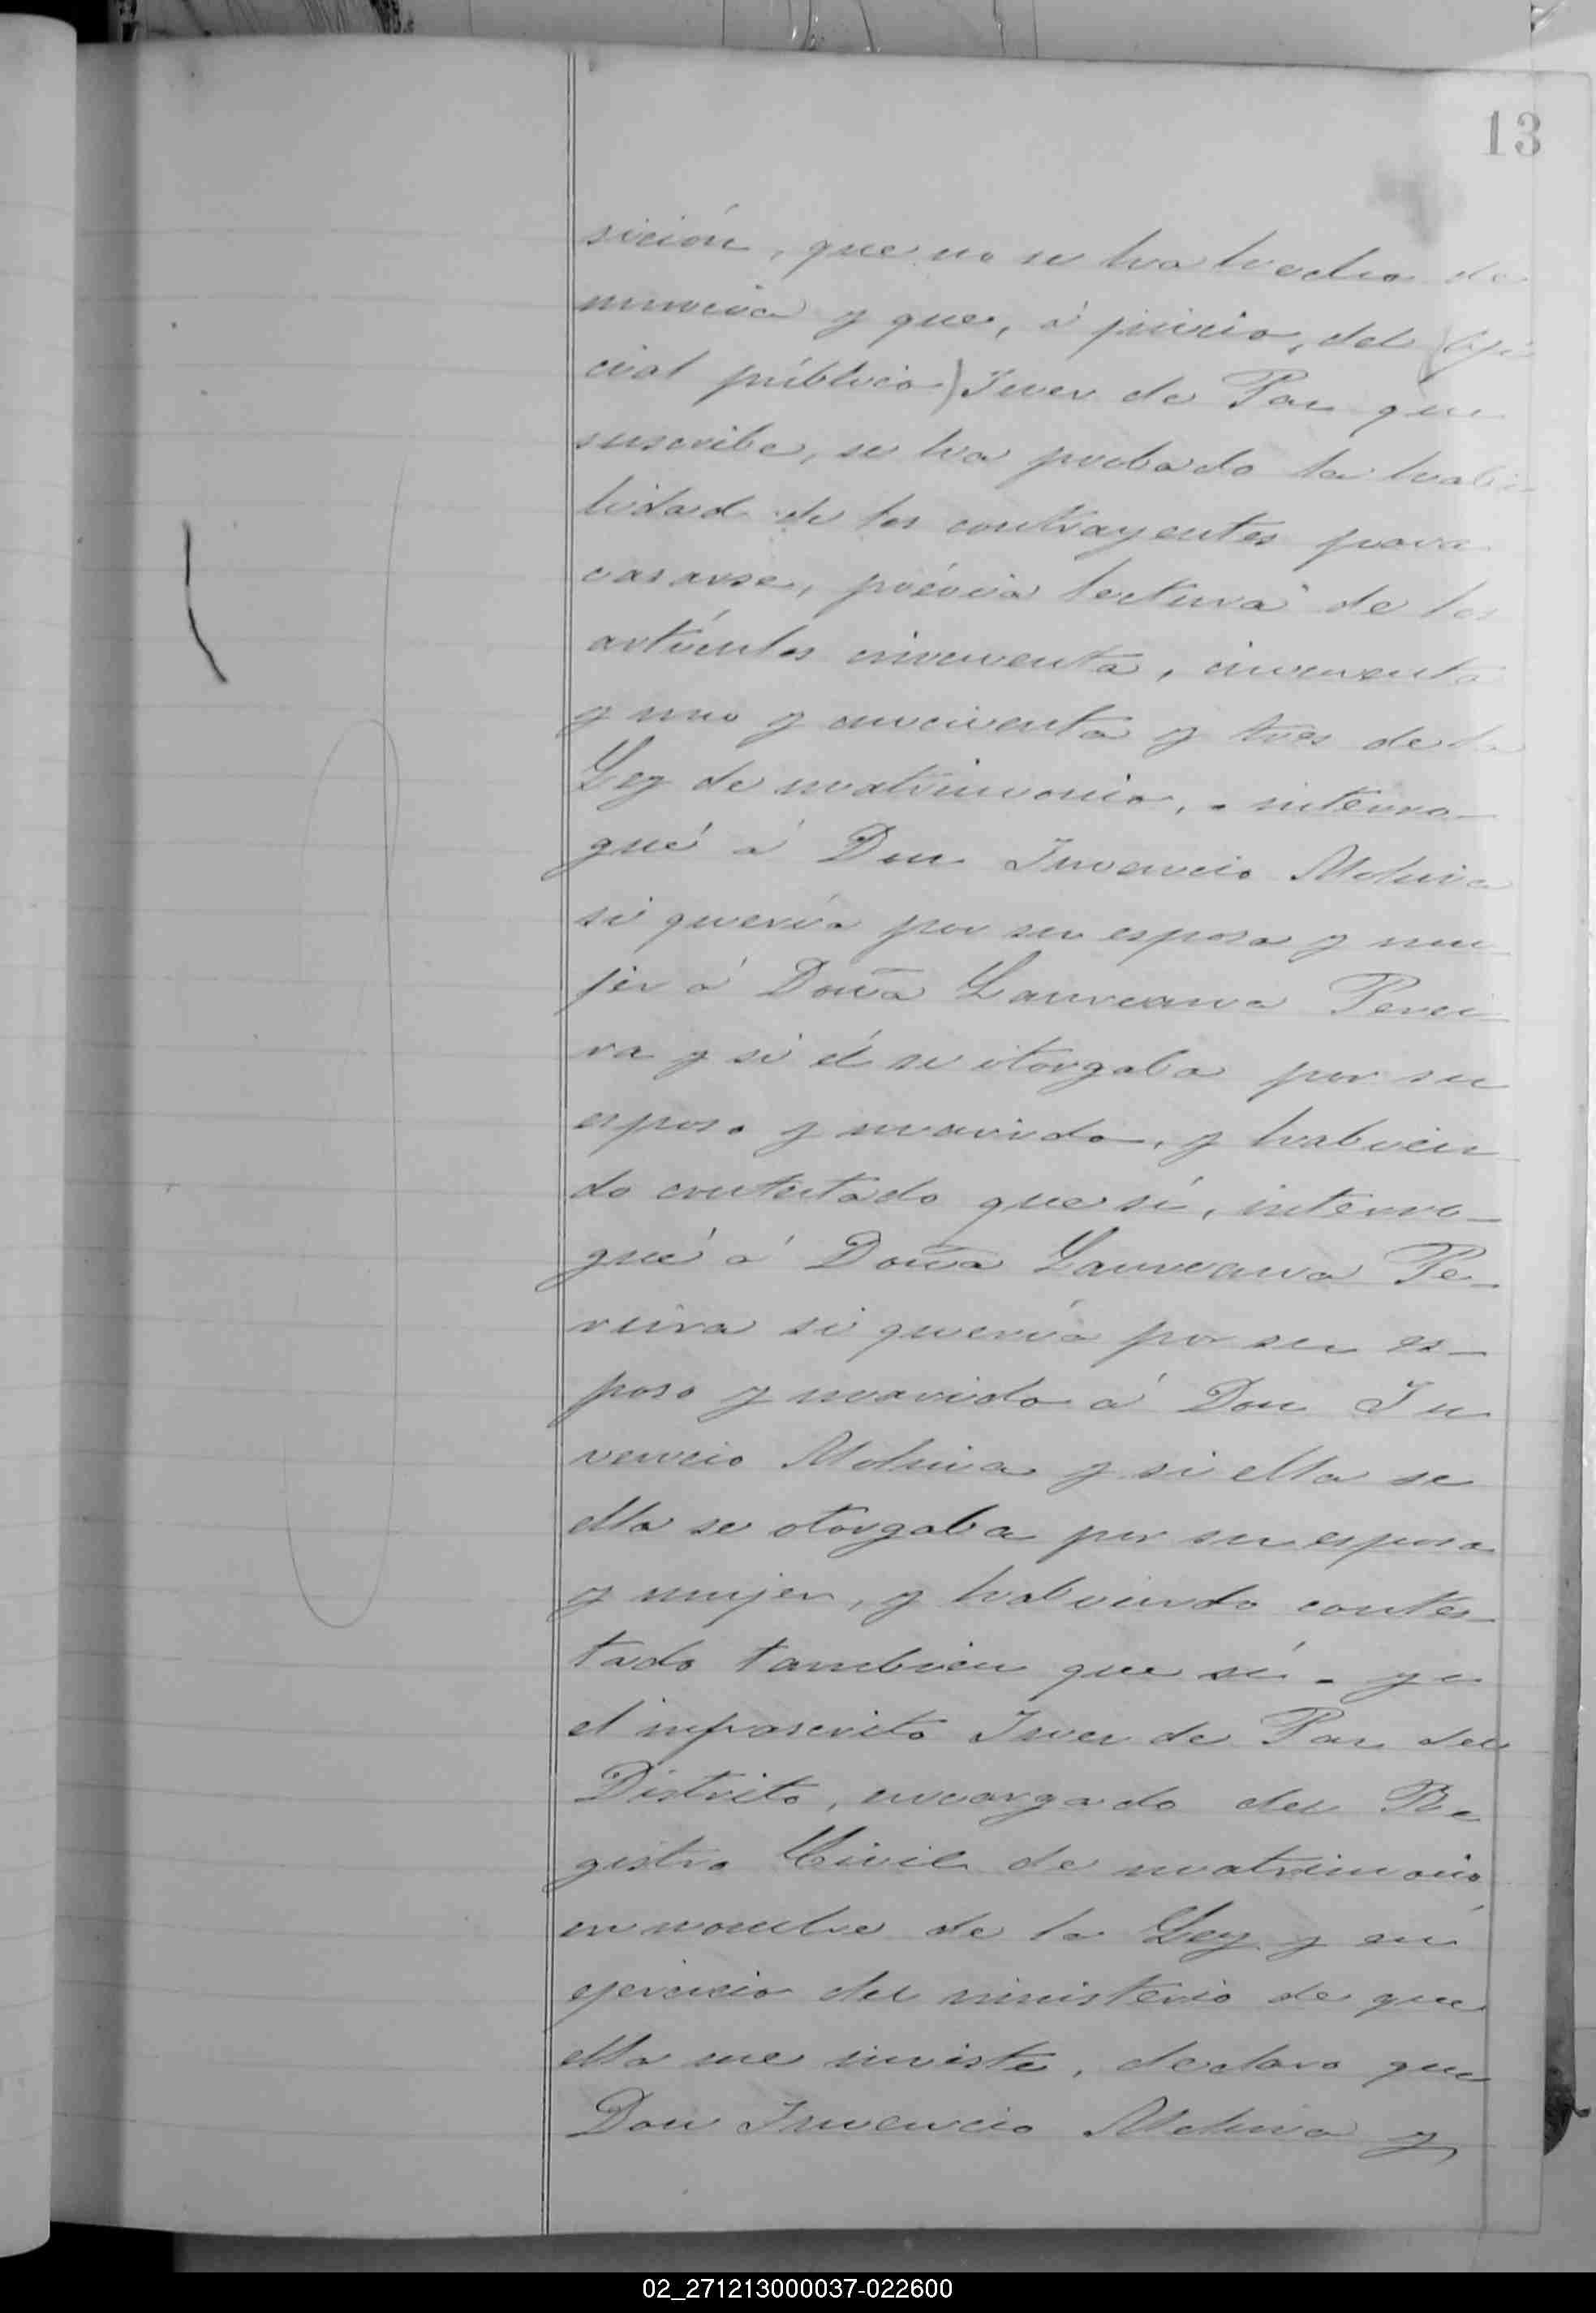 13
sición, que no se ha hecho de
nuncia y que, á juicio, del (ofi
cial público) Juez de Paz que
suscribe, se ha probado la habi
lidad de los contrayentes para
casarse, prévia lectura de los
artículos cincuenta, cincuenta
y uno y cincuenta y tres de la
Ley de matrimonio, - interro-
gué á Don Juvencio Molina
si quería por su esposa y mu
jer á Doña Laureana Perei
ra y si él se otorgaba por su
esposo y marido, y habien
do contestado que sí, interro-
gué á Doña Laureana Pe-
reira si quería por su es-
poso y marido á Don Ju
vencio Molina y si ella se
ella se otorgaba por su esposa
y mujer, y habiendo contes-
tado tambien que sí - yo
el infrascrito Juez de Paz del
Distrito, encargado del Re
gistro Civil de matrimonio
en nombre de la Ley y en
ejercicio del ministerio de que
ella me inviste, declaro que
Don Juvencio Molina y
02_271213000037-022600